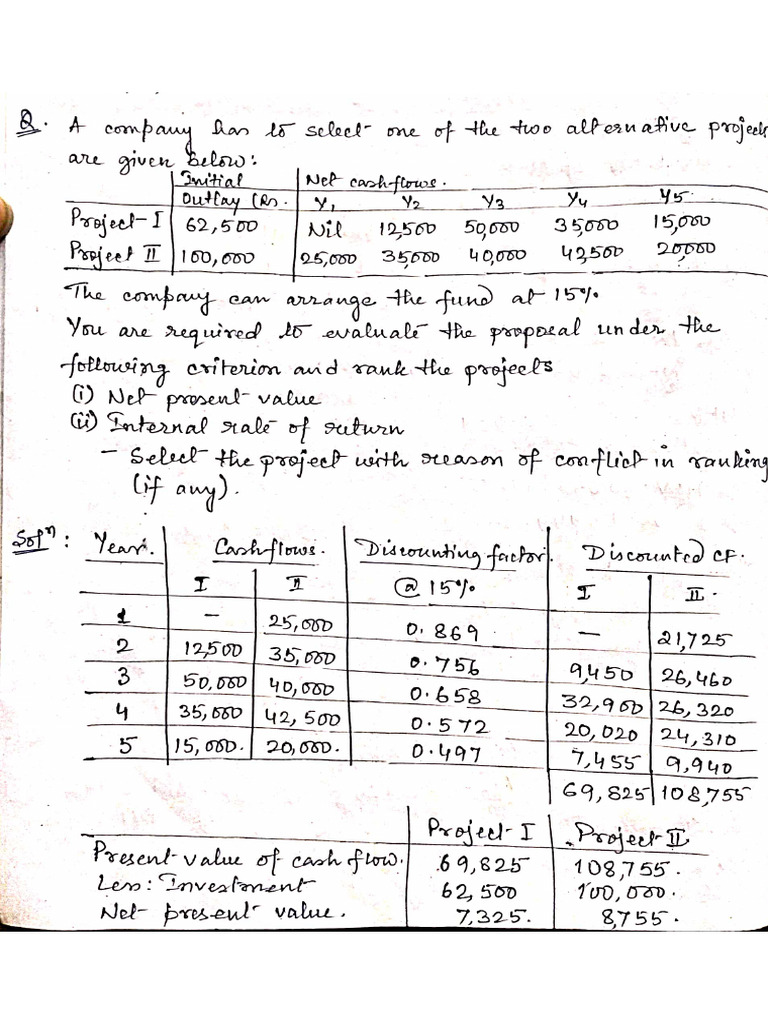 Q. A company has to select one of the two alternative projects
are given below:
Initial Net cashflows.
Outlay (Rs. Y1 Y2 Y3 Y4 Y5
Project-I 62,500 Nil 12,500 50,000 35,000 15,000
Project II 100,000 25,000 35,000 40,000 42,500 20,000
The company can arrange the fund at 15%
You are required to evaluate the proposal under the
following criterion and rank the projects
(i) Net present value
(ii) Internal rate of return
- Select the project with reason of conflict in ranking
(if any).
Solⁿ: Year. Cashflows. Discounting factor. Discounted CF.
I II @ 15% I II.
1 — 25,000 0.869 — 21,725
2 12,500 35,000 0.756 9,450 26,460
3 50,000 40,000 0.658 32,900 26,320
4 35,000 42,500 0.572 20,020 24,310
5 15,000. 20,000. 0.497 7,455 9,940
69,825 108,755
Project-I Project-II
Present value of cash flow. 69,825 108,755.
Less: Investment 62,500 100,000.
Net present value. 7,325. 8,755.